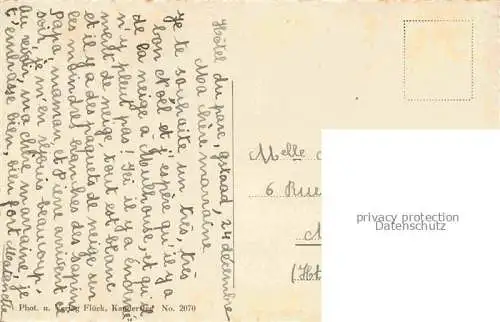 Hôtel du parc, gstaad, 24 décembre
Ma chère marraine
Je te souhaite un très, très
bon Noël et j'espère qu'il y a
de la neige a Mulhouse, et qu'il
n'y pleut pas! Ici il y a énormé-
ment de neige, tout est blanc
et il y a des paquets de neige sur
les moindres branches des sapins
Papa, maman et arrivent ce
soir, je m'en réjouis beaucoup.
au revoir, ma chère marraine, je
t'embrasse bien, bien fort
Melle
6 Rue
(Ht
privacy protection
Datenschutz
Phot. u. Verlag Flück, Kandersteg No. 2070